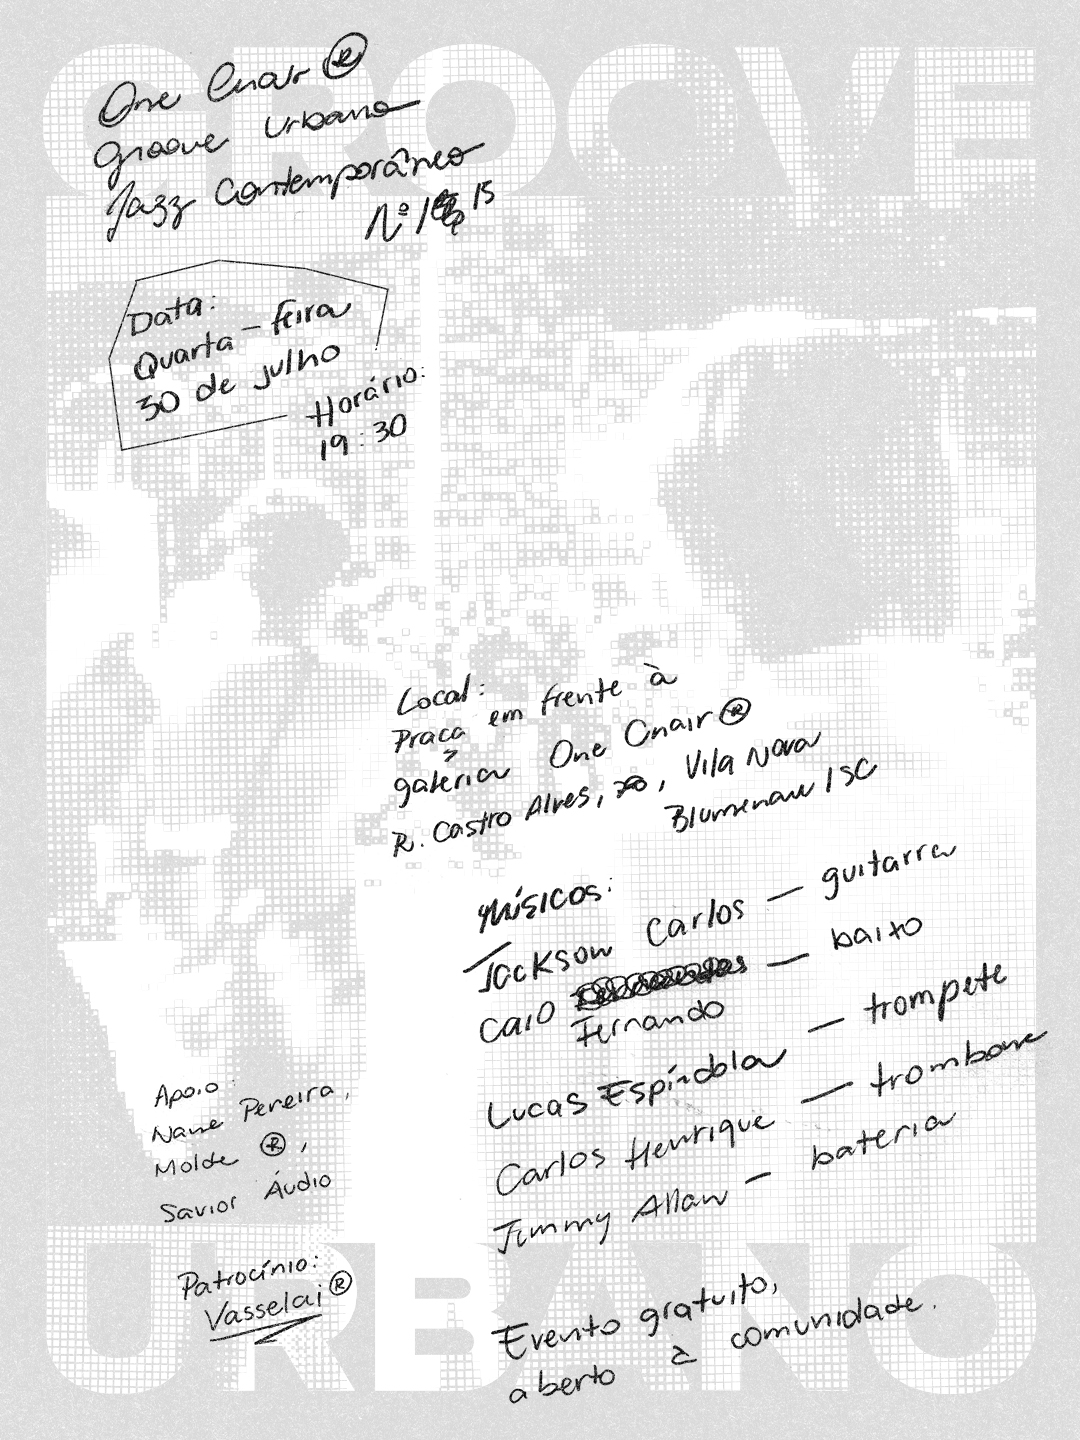 GROOVE
One Cnair ®
Groove Urbano
Jazz Contemporâneo
Nº 15
Data:
Quarta-feira
30 de julho
Horário:
19:30
Local:
Praça em frente à
galeria One Cnair ®
R. Castro Alves, 70, Vila Nova
Blumenau / SC
Músicos:
Jackson Carlos — guitarra
Caio Fernando — baixo
Lucas Espíndola — trompete
Carlos Henrique — trombone
Jimmy Allan — bateria
Apoio:
Nane Pereira,
Molde ®,
Savior Áudio
Patrocínio:
Vasselai ®
Evento gratuito,
aberto à comunidade.
URBANO